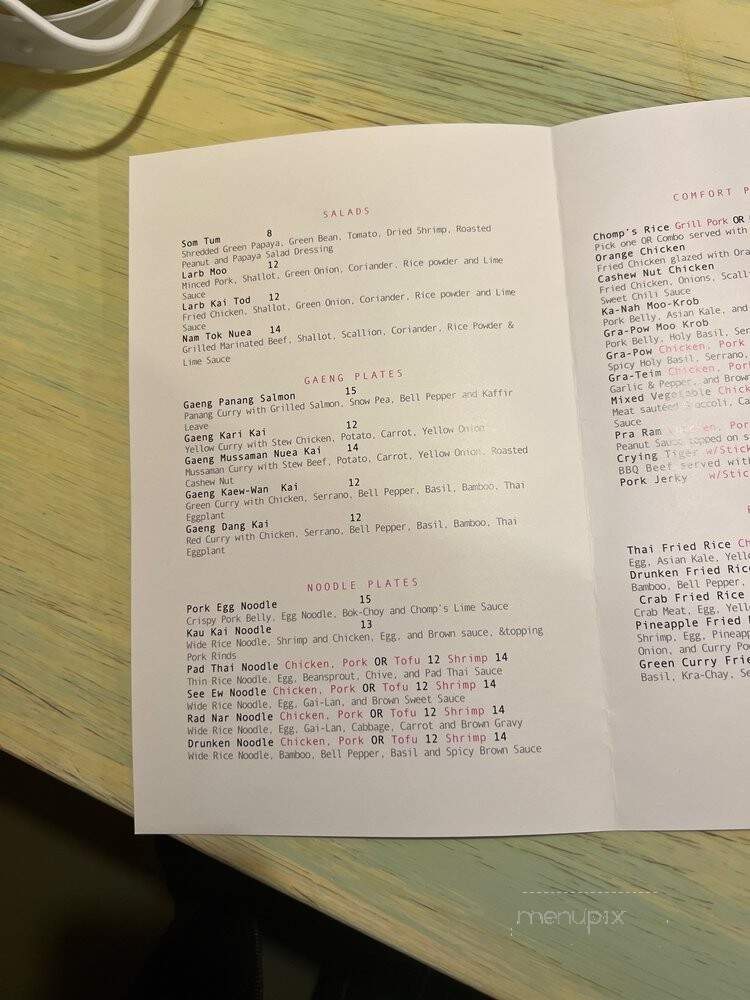 SALADS
Som Tum 8
Shredded Green Papaya, Green Bean, Tomato, Dried Shrimp, Roasted
Peanut and Papaya Salad Dressing
Larb Moo 12
Minced Pork, Shallot, Green Onion, Coriander, Rice powder and Lime
Sauce
Larb Kai Tod 12
Fried Chicken, Shallot, Green Onion, Coriander, Rice powder and Lime
Sauce
Nam Tok Nuea 14
Grilled Marinated Beef, Shallot, Scallion, Coriander, Rice Powder &
Lime Sauce
GAENG PLATES
Gaeng Panang Salmon 15
Panang Curry with Grilled Salmon, Snow Pea, Bell Pepper and Kaffir
Leave
Gaeng Kari Kai 12
Yellow Curry with Stew Chicken, Potato, Carrot, Yellow Onion
Gaeng Mussaman Nuea Kai 14
Mussaman Curry with Stew Beef, Potato, Carrot, Yellow Onion, Roasted
Cashew Nut
Gaeng Kaew-Wan Kai 12
Green Curry with Chicken, Serrano, Bell Pepper, Basil, Bamboo, Thai
Eggplant
Gaeng Dang Kai 12
Red Curry with Chicken, Serrano, Bell Pepper, Basil, Bamboo, Thai
Eggplant
NOODLE PLATES
Pork Egg Noodle 15
Crispy Pork Belly, Egg Noodle, Bok-Choy and Chomp's Lime Sauce
Kau Kai Noodle 13
Wide Rice Noodle, Shrimp and Chicken, Egg, and Brown sauce, &topping
Pork Rinds
Pad Thai Noodle Chicken, Pork OR Tofu 12 Shrimp 14
Thin Rice Noodle, Egg, Beansprout, Chive, and Pad Thai Sauce
See Ew Noodle Chicken, Pork OR Tofu 12 Shrimp 14
Wide Rice Noodle, Egg, Gai-Lan, and Brown Sweet Sauce
Rad Nar Noodle Chicken, Pork OR Tofu 12 Shrimp 14
Wide Rice Noodle, Egg, Gai-Lan, Cabbage, Carrot and Brown Gravy
Drunken Noodle Chicken, Pork OR Tofu 12 Shrimp 14
Wide Rice Noodle, Bamboo, Bell Pepper, Basil and Spicy Brown Sauce
COMFORT P
Chomp's Rice Grill Pork OR
Pick one OR Combo served with
Orange Chicken
Fried Chicken glazed with Ora
Cashew Nut Chicken
Fried Chicken, Onions, Scall
Sweet Chili Sauce
Ka-Nah Moo-Krob
Pork Belly, Asian Kale, and
Gra-Pow Moo Krob
Pork Belly, Holy Basil, Ser
Gra-Pow Chicken, Pork
Spicy Holy Basil, Serrano,
Gra-Teim Chicken, Pork
Garlic & Pepper, and Brown
Mixed Vegetable Chick
Meat sautéed Ca
Sauce
Pra Ram Por
Peanut Sauce topped on s
Crying Tiger w/Stic
BBQ Beef served with
Pork Jerky w/Stic
Thai Fried Rice Ch
Egg, Asian Kale, Yell
Drunken Fried Rice
Bamboo, Bell Pepper,
Crab Fried Rice
Crab Meat, Egg, Yell
Pineapple Fried
Shrimp, Egg, Pineapp
Onion, and Curry Po
Green Curry Frie
Basil, Kra-Chay, Se
menupix